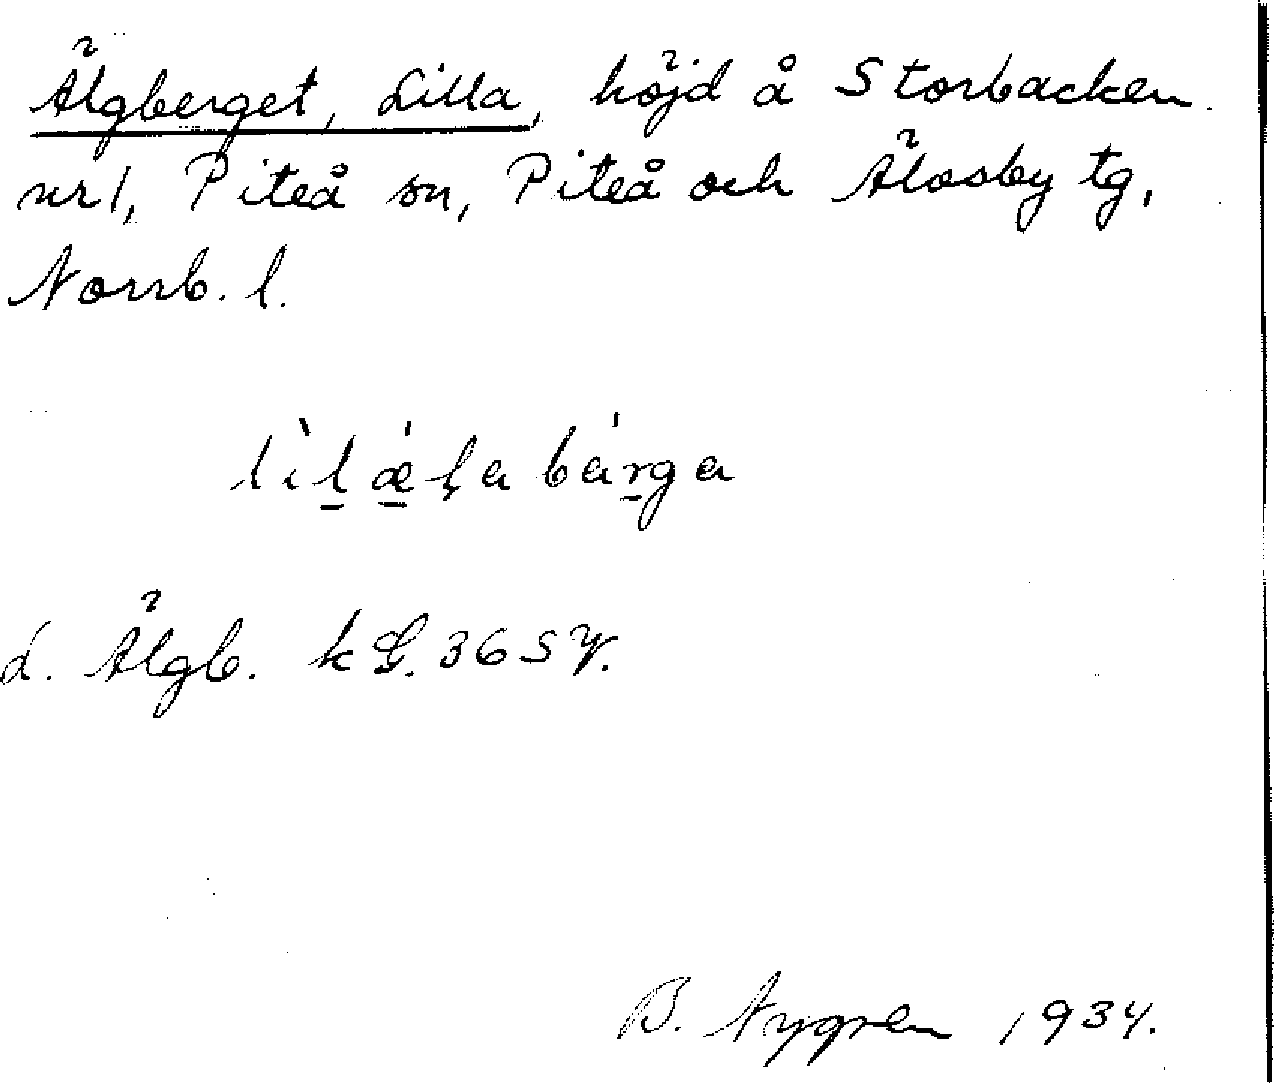 Älgberget, Lilla, höjd å Storbacken
nr 1, Piteå sn, Piteå och Älvsby tg,
Norrb. l.
lìlǽḷabárga
L. Älgb. kG. 36 SV.
B. Nygren 1934.